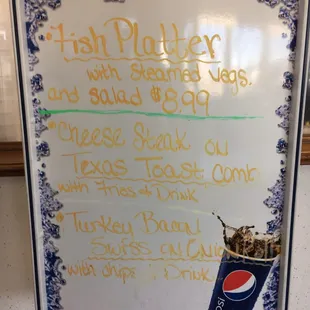 *Fish Platter
with steamed vegs.
and salad $8.99
*Cheese Steak on
Texas Toast Combo
with Fries & Drink
*Turkey Bacon
Swiss on
with chips & Drink
pepsi